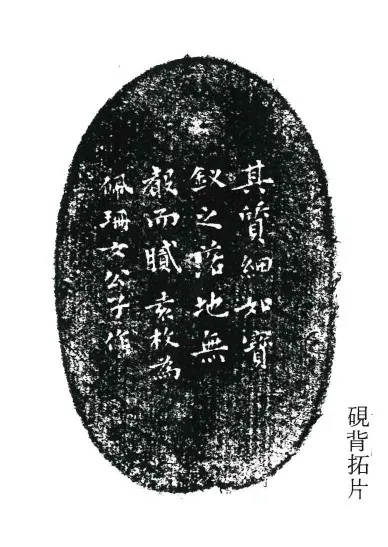 其質細如寶
釵之落地無
聲而膩 袁枚為
佩珊女公子作
硯背拓片